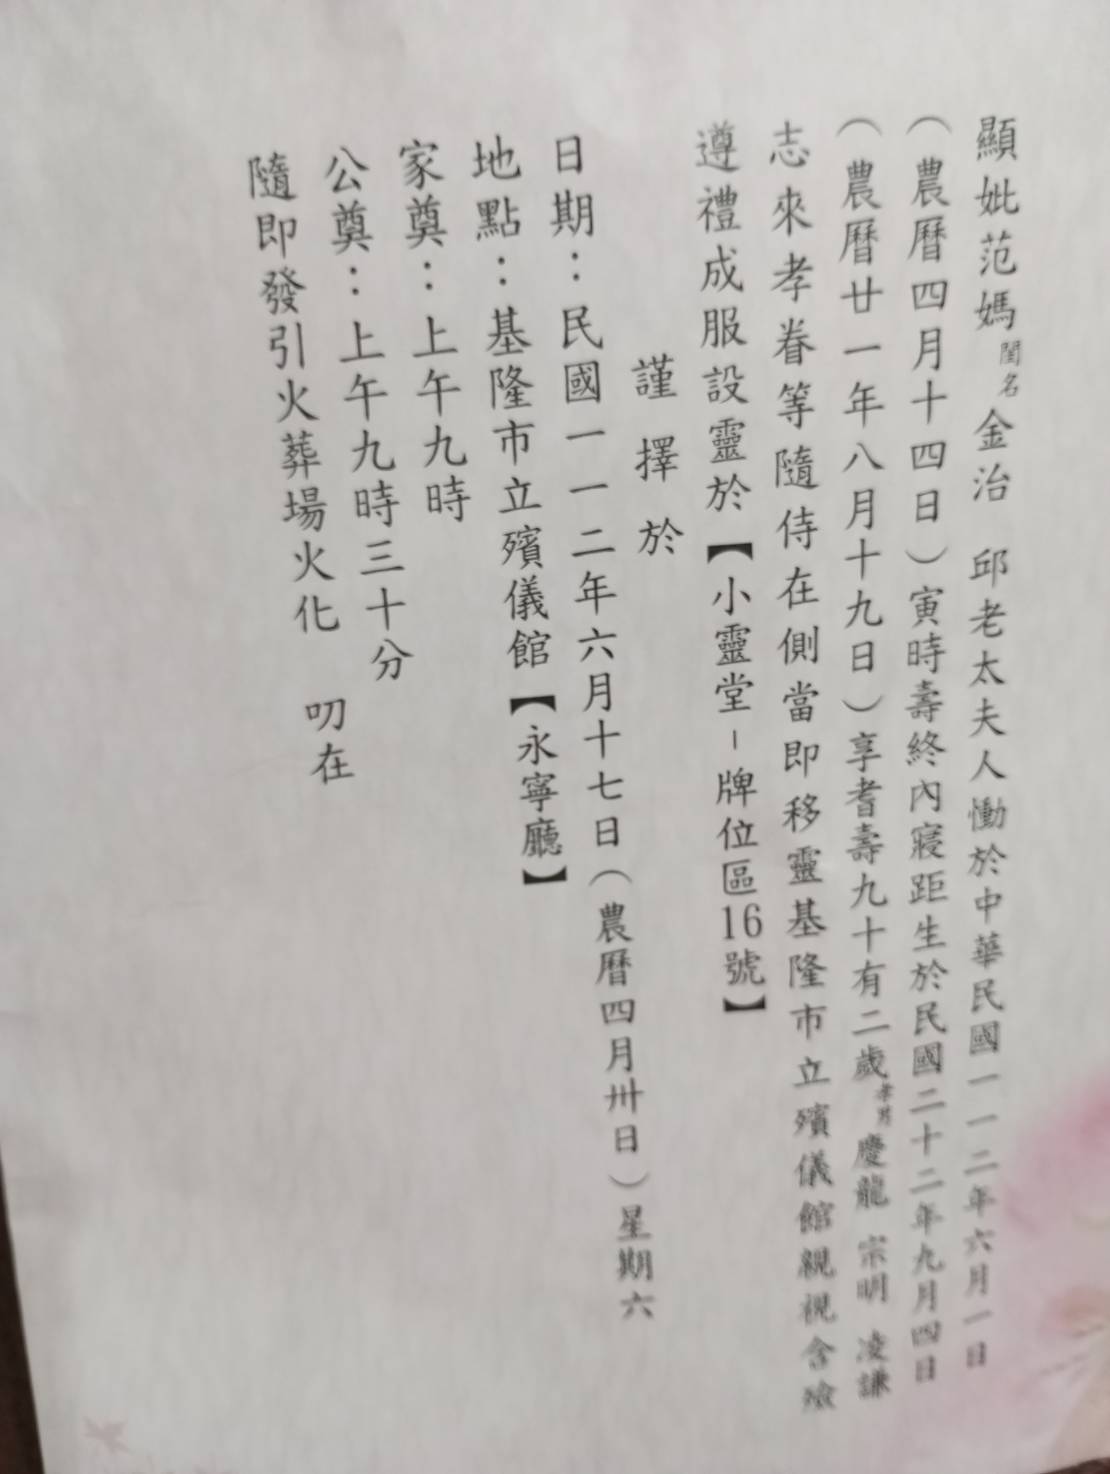 顯妣范媽閨名金治　邱老太夫人慟於中華民國一一二年六月一日
（農曆四月十四日）寅時壽終內寢距生於民國二十二年九月四日
（農曆廿一年八月十九日）享耆壽九十有二歲孝男慶龍　宗明　凌謙
志來孝眷等隨侍在側當即移靈基隆市立殯儀館親視含殮
遵禮成服設靈於【小靈堂－牌位區16號】
謹擇於
日期：民國一一二年六月十七日（農曆四月卅日）星期六
地點：基隆市立殯儀館【永寧廳】
家奠：上午九時
公奠：上午九時三十分
隨即發引火葬場火化　叨在